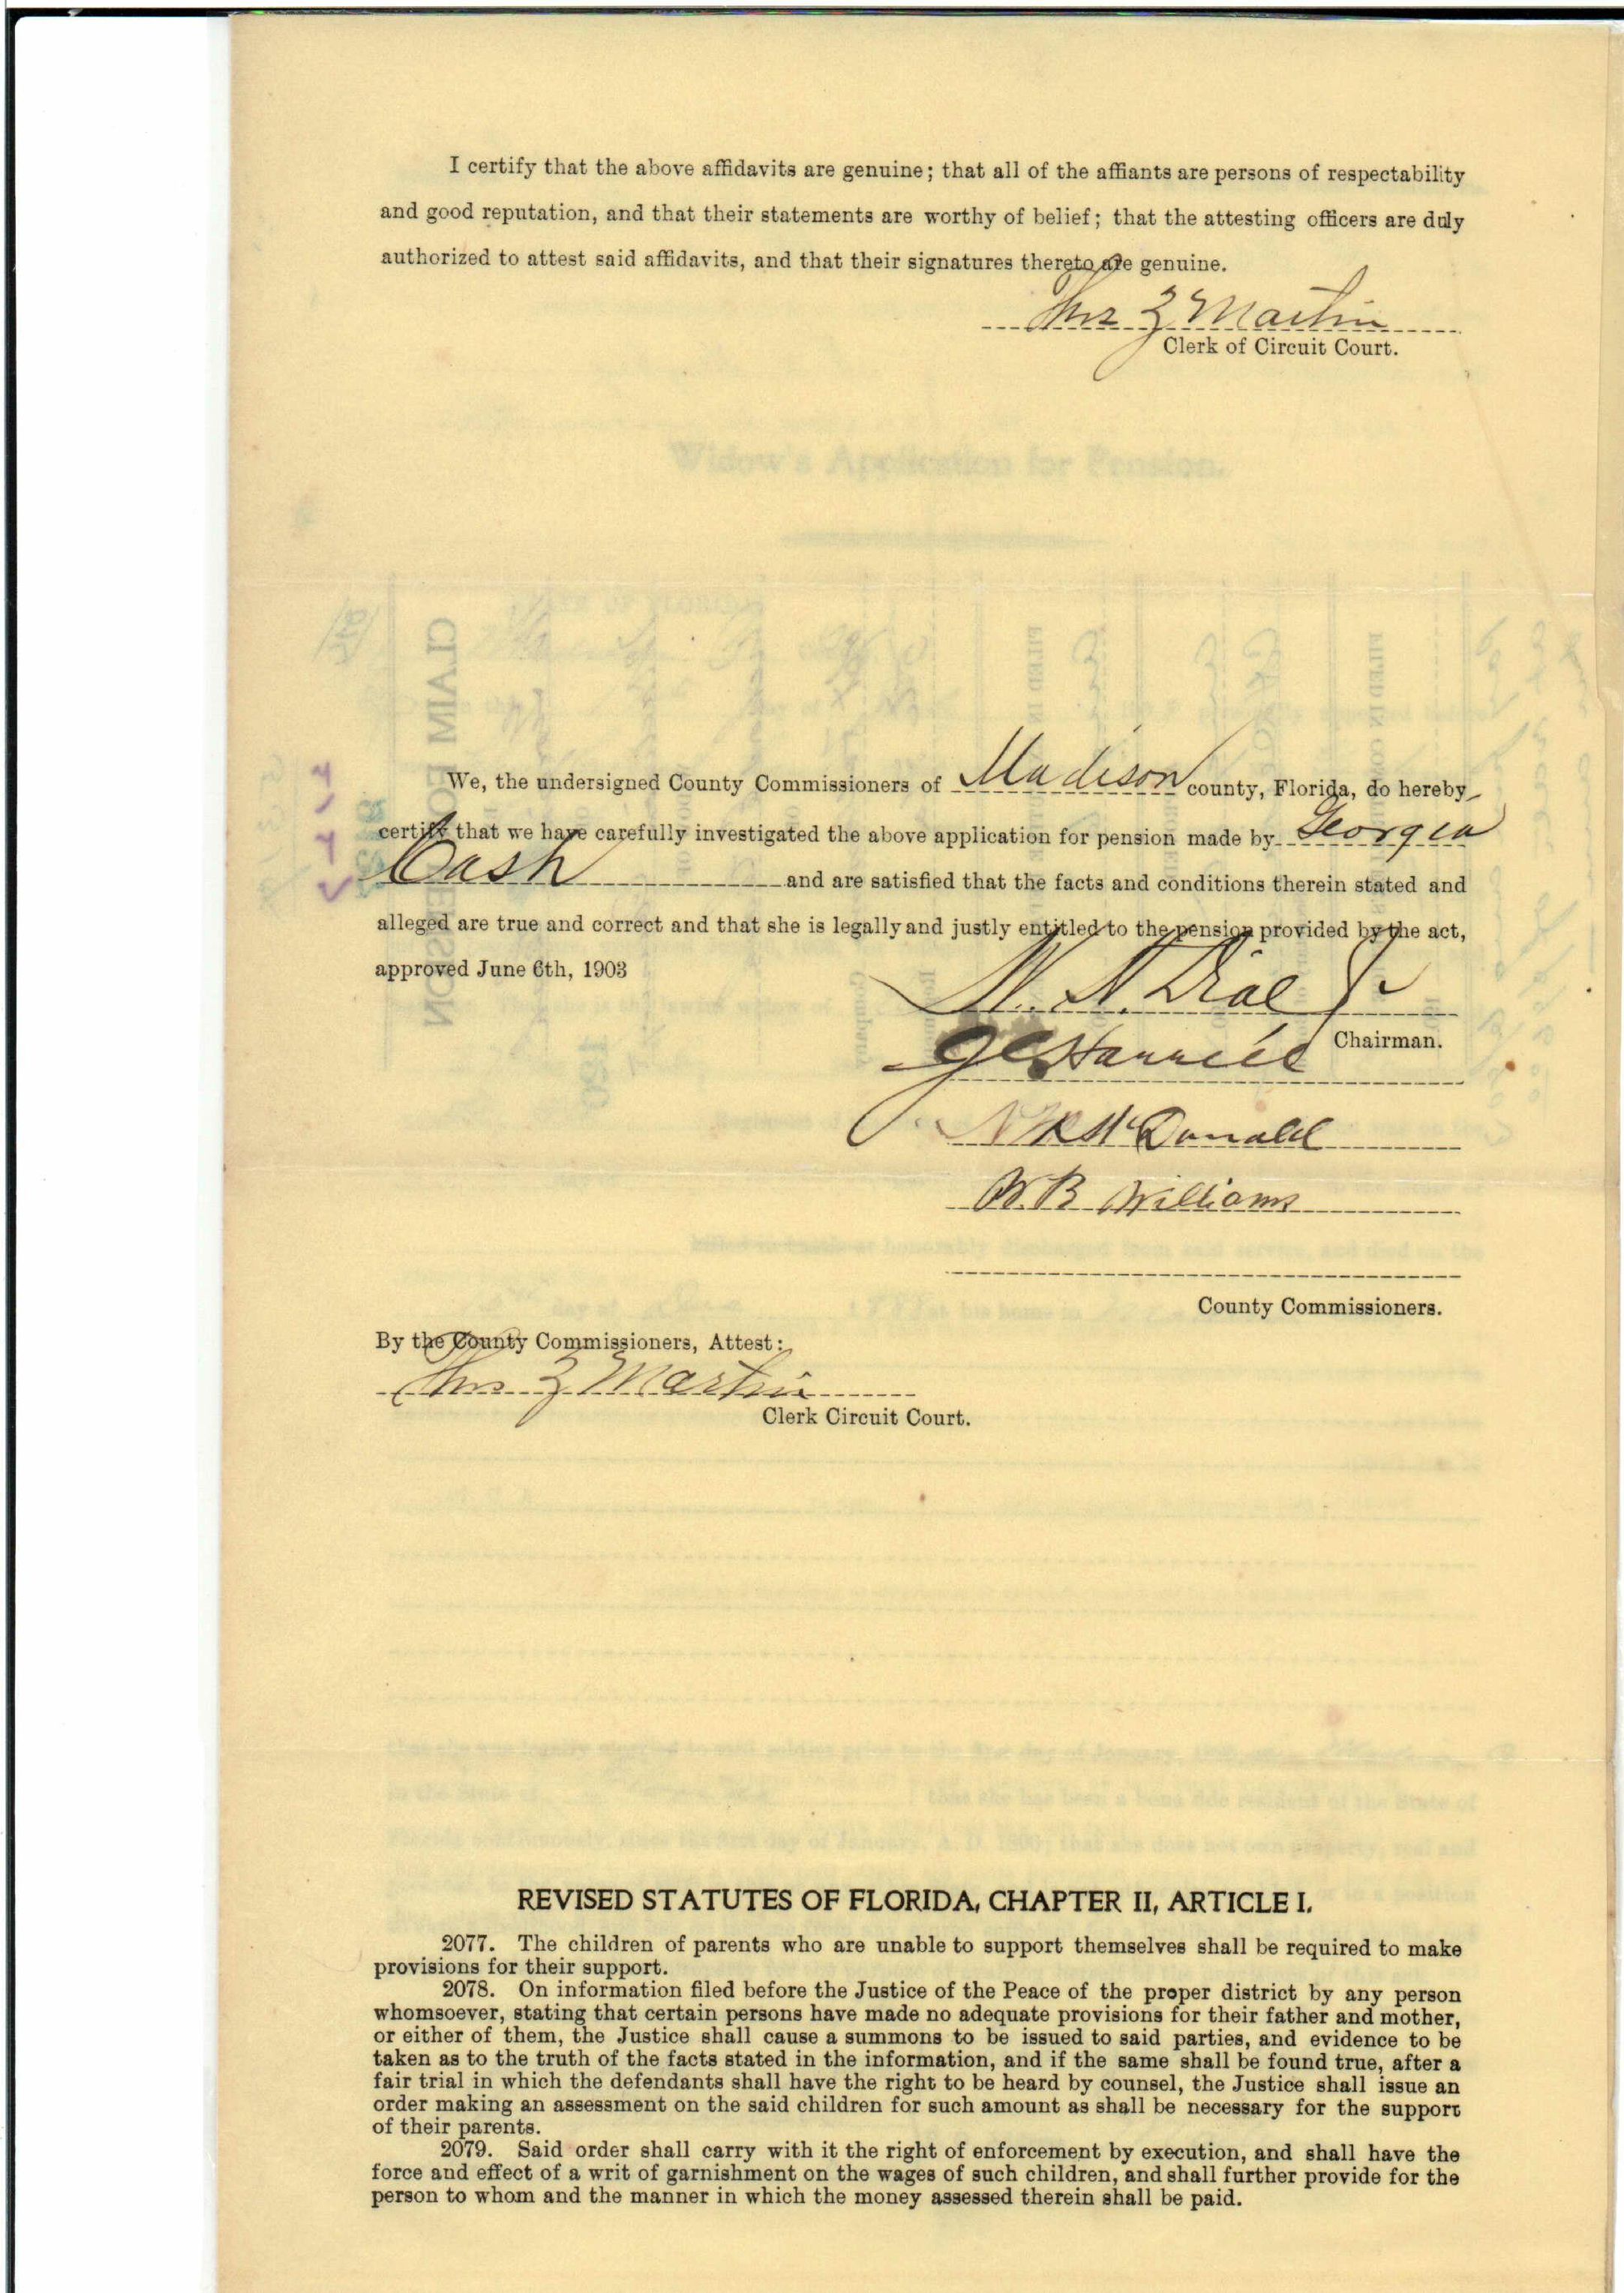 I certify that the above affidavits are genuine; that all of the affiants are persons of respectability
and good reputation, and that their statements are worthy of belief; that the attesting officers are duly
authorized to attest said affidavits, and that their signatures thereto are genuine.
Z Martin
Clerk of Circuit Court.
Widow's Application for Pension.
We, the undersigned County Commissioners of Madison county, Florida, do hereby
certify that we have carefully investigated the above application for pension made by Georgia
Cash and are satisfied that the facts and conditions therein stated and
alleged are true and correct and that she is legally and justly entitled to the pension provided by the act,
approved June 6th, 1903
Dial Jr
Chairman.
McDonald
W. B Williams
County Commissioners.
By the County Commissioners, Attest:
Z Martin
Clerk Circuit Court.
REVISED STATUTES OF FLORIDA, CHAPTER II, ARTICLE I.
2077. The children of parents who are unable to support themselves shall be required to make
provisions for their support.
2078. On information filed before the Justice of the Peace of the proper district by any person
whomsoever, stating that certain persons have made no adequate provisions for their father and mother,
or either of them, the Justice shall cause a summons to be issued to said parties, and evidence to be
taken as to the truth of the facts stated in the information, and if the same shall be found true, after a
fair trial in which the defendants shall have the right to be heard by counsel, the Justice shall issue an
order making an assessment on the said children for such amount as shall be necessary for the support
of their parents.
2079. Said order shall carry with it the right of enforcement by execution, and shall have the
force and effect of a writ of garnishment on the wages of such children, and shall further provide for the
person to whom and the manner in which the money assessed therein shall be paid.